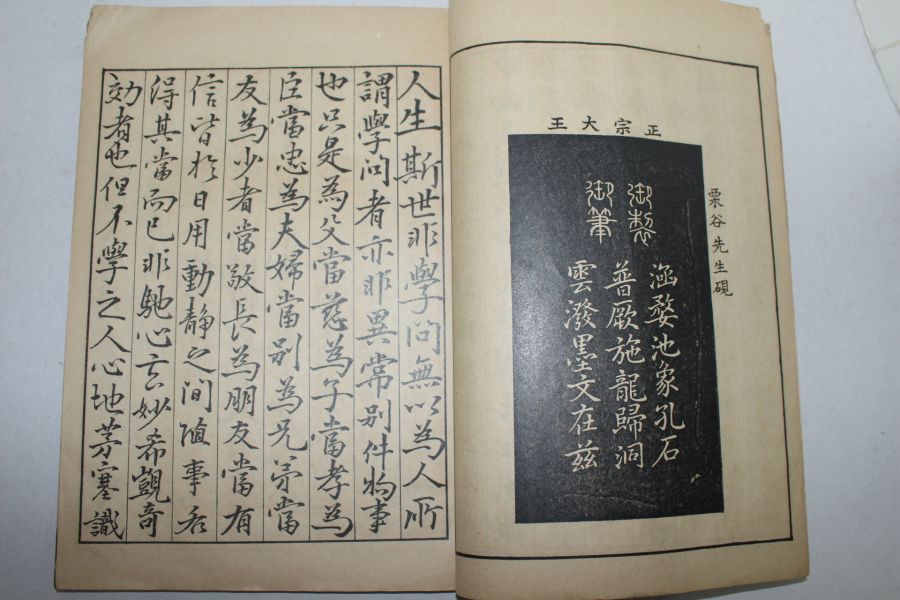 栗谷先生硯
正宗大王
御製
御筆
涵婺池象孔石
普厥施龍歸洞
雲潑墨文在玆
人生斯世非學問無以為人所
謂學問者亦非異常別件物事
也只是為父當慈為子當孝為
臣當忠為夫婦當別為兄弟當
友為少者當敬長為朋友當有
信皆於日用動靜之間隨事各
得其當而已非馳心玄妙希覬奇
効者也但不學之人心地茅塞識